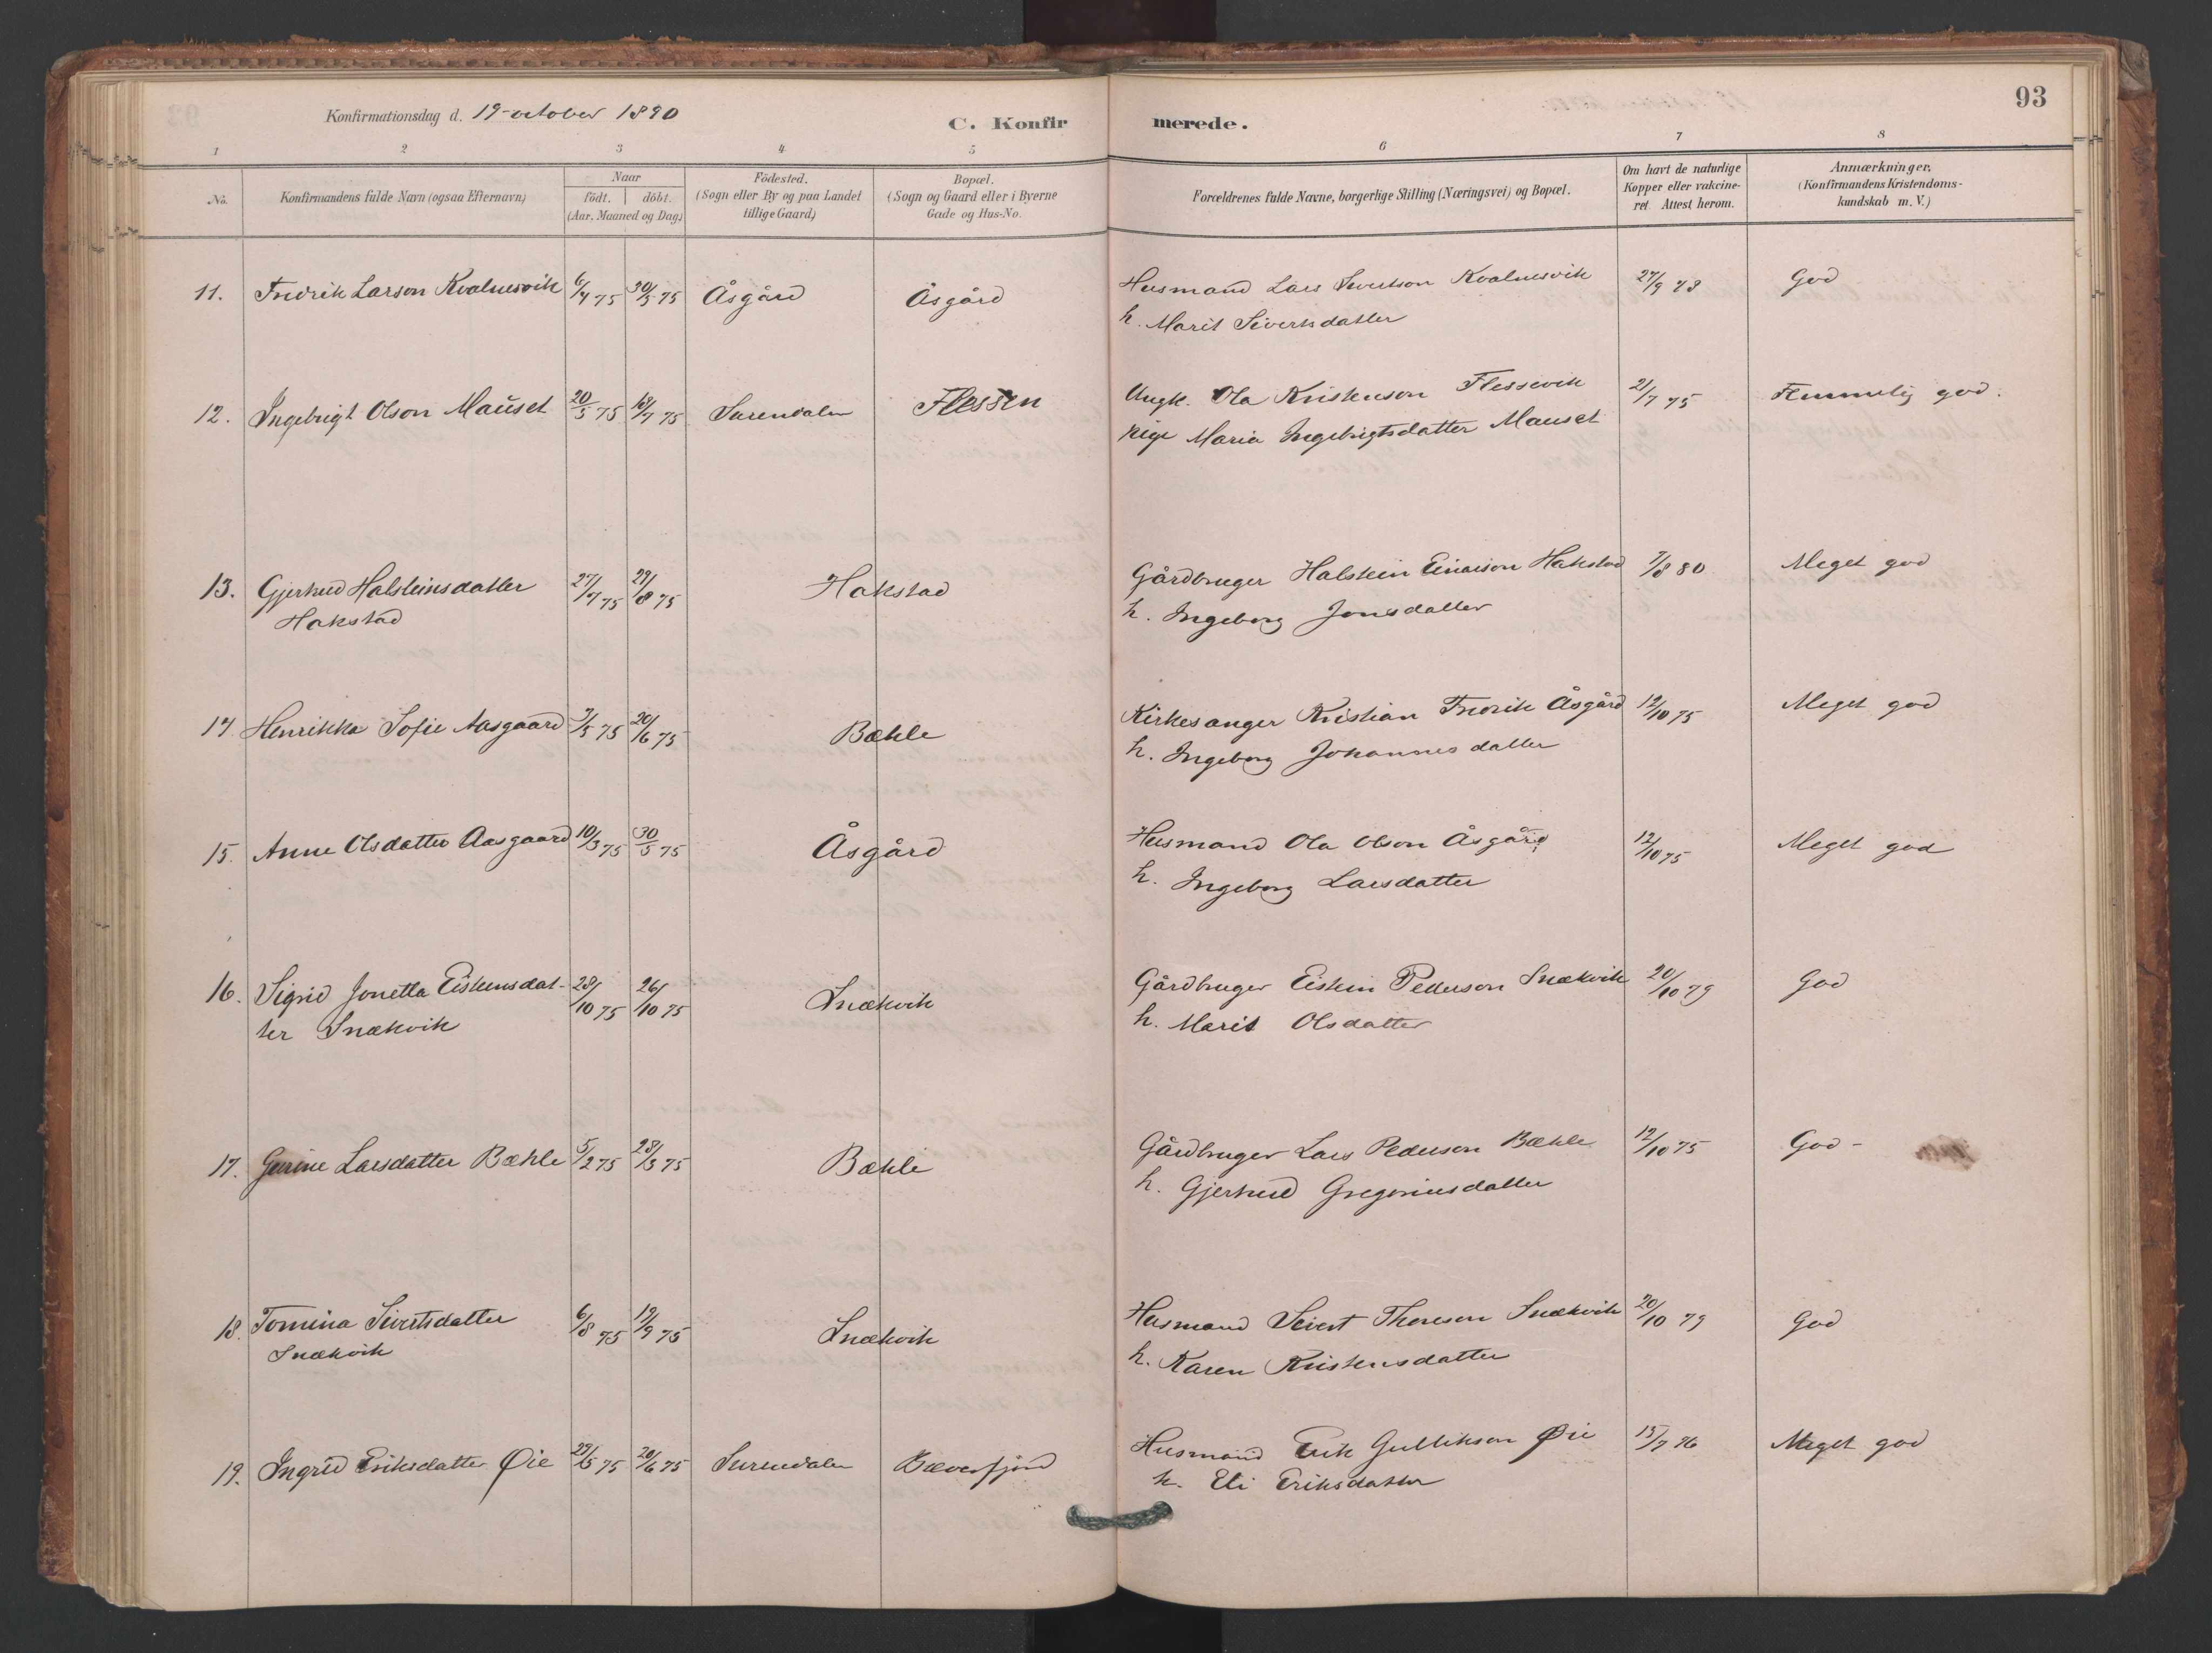 93
Konfirmationsdag d. 19-october 1890
C. Konfirmerede.
1 2 3 4 5 6 7 8
No. Konfirmandens fulde Navn (ogsaa Efternavn) Naar födt. döbt. (Aar, Maaned og Dag.) Födested. (Sogn eller By og paa Landet tillige Gaard) Bopæl. (Sogn og Gaard eller i Byerne Gade og Hus-No. Forældrenes fulde Navne, borgerlige Stilling (Næringsvei) og Bopæl. Om havt de naturlige Kopper eller vakcineret. Attest herom. Anmærkninger. (Konfirmandens Kristendomskundskab m. V.)
11. Fredrik Larson Kvalnesvik 6/4 75 30/5 75 Åsgård Åsgård Husmand Lars Sivertson Kvalnesvik 27/9 78 God
h. Marit Sivertsdatter
12. Ingebrigt Olson Mauset 20/5 75 18/7 75 Surendalen Flessen Ungk. Ola Kristenson Flessevik 21/7 75 Temmelig god.
pige Maria Ingebrigtsdatter Mauset
13. Gjertrud Halsteinsdatter 27/7 75 29/8 75 Hakstad Gårdbruger Halstein Einarson Hakstad 7/8 80 Meget god
Hakstad h. Ingeborg Jonsdatter
14. Henrikka Sofie Aasgaard 7/5 75 20/6 75 Bæhle Kirkesanger Kristian Fredrik Åsgård 12/10 75 Meget god
h. Ingeborg Johannesdatter
15. Anne Olsdatter Aasgaard 10/3 75 30/5 75 Åsgård Husmand Ola Olson Åsgård 12/10 75 Meget god
h. Ingeborg Larsdatter
16. Sigrid Jonetta Eistensdat- 28/10 75 26/10 75 Snækvik Gårdbruger Eistein Pederson Snækvik 20/10 79 God
ter Snækvik h. Marit Olsdatter
17. Gurine Larsdatter Bæhle 5/2 75 28/3 75 Bæhle Gårdbruger Lars Pederson Bæhle 12/10 75 God -
h. Gjertrud Gregoriusdatter
18. Tomina Sivertsdatter 6/8 75 19/9 75 Snækvik Husmand Sivert Thoreson Snækvik 20/10 79 God
Snækvik h. Karen Kristensdatter
19. Ingrid Eriksdatter Øie 29/5 75 20/6 75 Surendalen Bæverfjord Husmand Erik Gullikson Øie 15/7 76 Meget god
h. Eli Eriksdatter